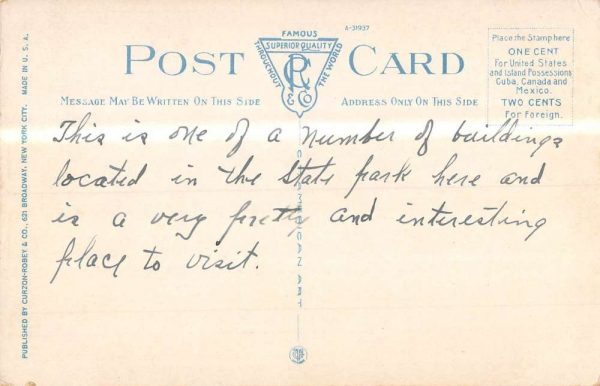 A-31937
FAMOUS
SUPERIOR QUALITY
THROUGHOUT
THE WORLD
POST CARD
CR
& Co
Place the Stamp here
ONE CENT
For United States
and Island Possessions
Cuba, Canada and
Mexico.
TWO CENTS
For Foreign.
MESSAGE MAY BE WRITTEN ON THIS SIDE
ADDRESS ONLY ON THIS SIDE
This is one of a number of buildings
located in the State park here and
is a very pretty and interesting
place to visit.
PUBLISHED BY CURZON-ROBEY & CO., 621 BROADWAY, NEW YORK CITY. MADE IN U. S. A.